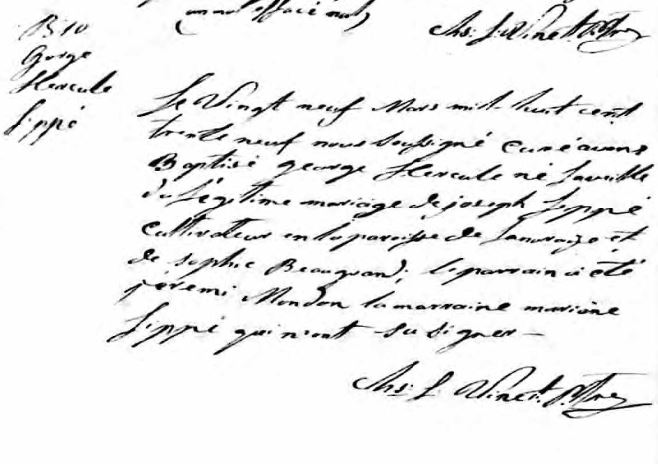 un mot effacé nul)
Chs: L: Vinet. Ptre
B 10
Gorge
Hercule
Sippé
Le Vingt neuf Mars mil huit cent
trente neuf nous soussigné curé avons
Baptisé george Hercule né la veille
du Légitime mariage de joseph Sippé
cultivateur en la paroisse de Lanoraie et
de sophie Beaugrand; le parrain a été
jérémi Mondon la marraine marione
Sippé qui n'ont su signer —
Chs: L: Vinet. Ptre